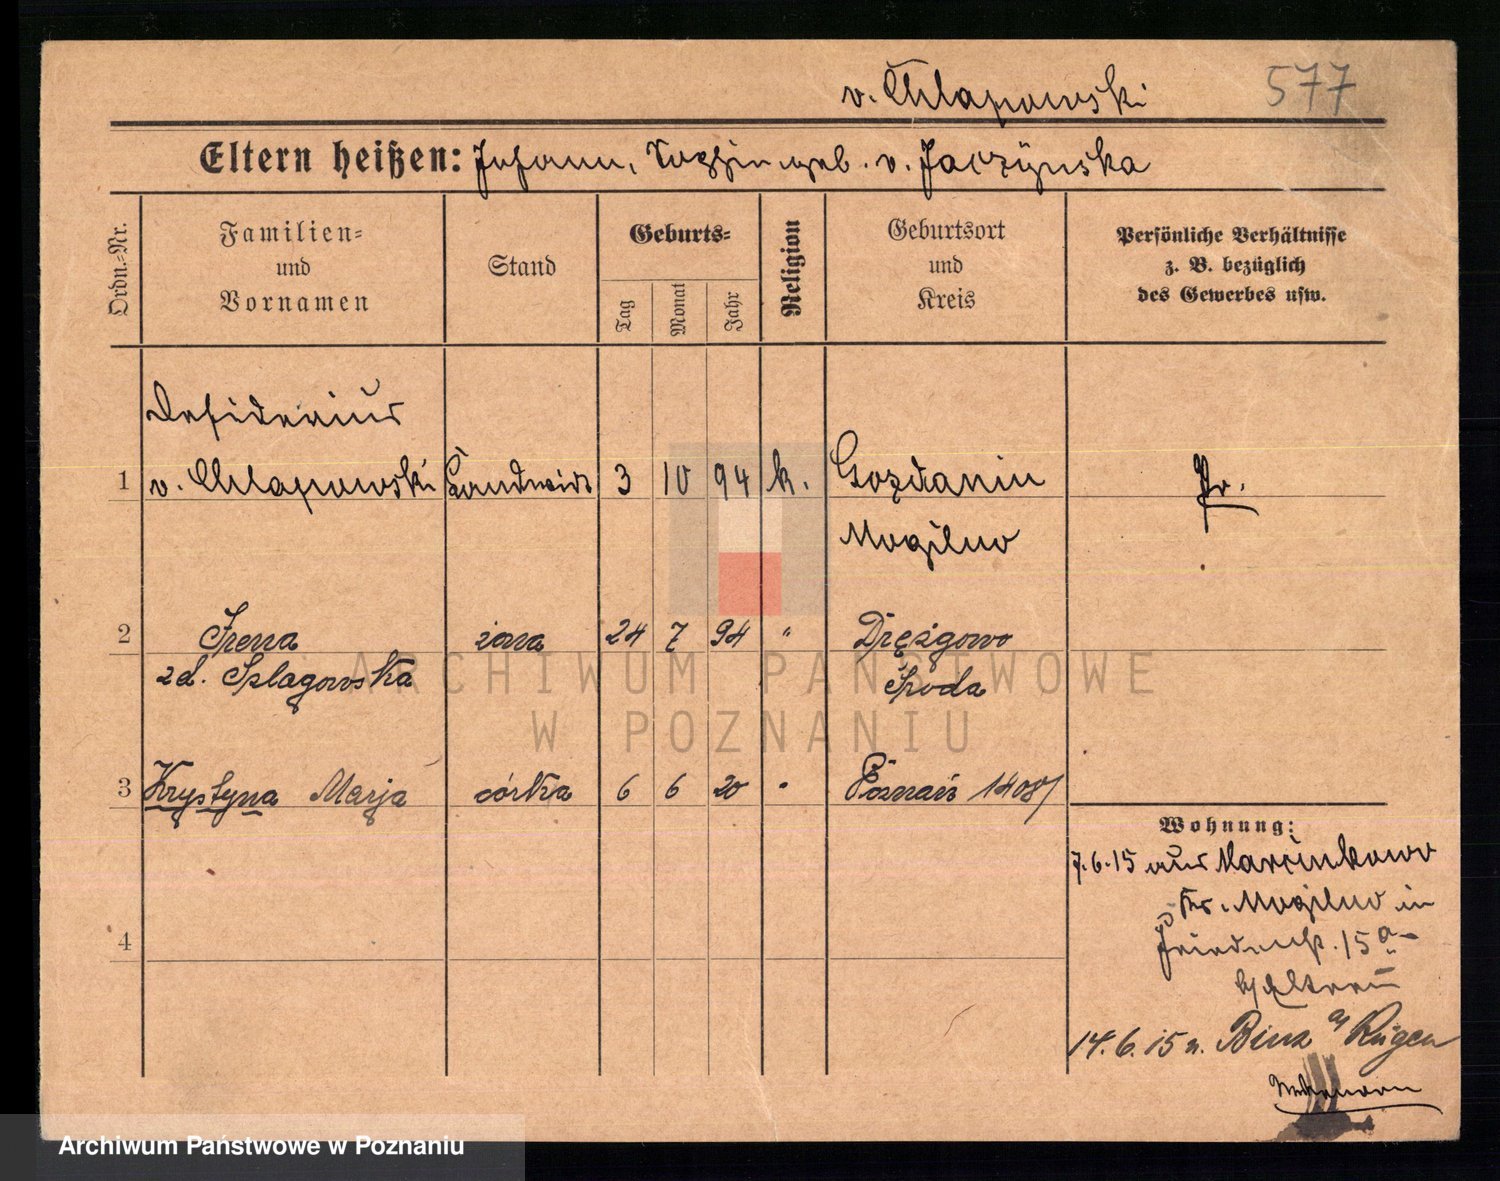 v. Chlapowski 577
Eltern heißen: Johann, Sophie geb. v. Jaczynska
Ordn.-Nr.
Familien-
und
Vornamen
Stand
Geburts-
Tag
Monat
Jahr
Religion
Geburtsort
und
Kreis
Persönliche Verhältnisse
z. B. bezüglich
des Gewerbes usw.
Desiderius
1 v. Chlapowski Landwirt 3 10 94 k. Gozdanin Pr.
Mogilno
2 Irena żona 24 7 94 " Drązgowo
zd. Szlagowska Środa
3 Krystyna Marja córka 6 6 20 " Poznań 1408/
Wohnung:
7.6.15 aus Marcinkowo
Kr. Mogilno in
4 Friedenstr. 15a
b/ Eltern
14.6.15 n. Binz a/ Rügen
ARCHIWUM PAŃSTWOWE
W POZNANIU
Archiwum Państwowe w Poznaniu